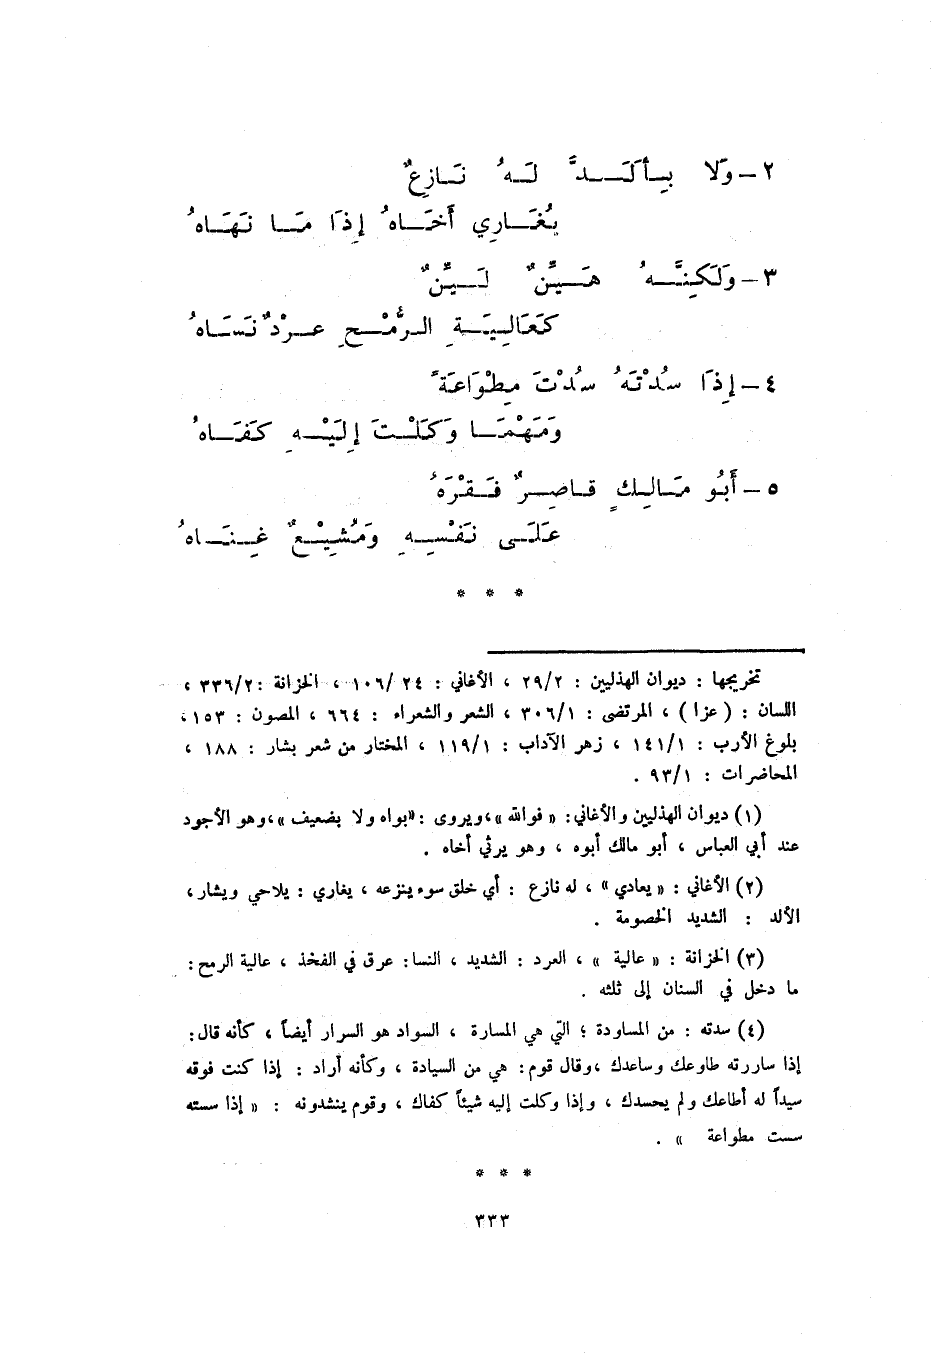 ٢ – وَلَا بِأَلَدَّ لَهُ نَازِعٌ
يُغَارِي أَخَاهُ إِذَا مَا نَهَاهُ
٣ – وَلَكِنَّهُ هَيِّنٌ لَيِّنٌ
كَعَالِيَةِ الرُّمْحِ عَرْدٌ نَسَاهُ
٤ – إِذَا سُدْتَهُ سُدْتَ مِطْوَاعَةً
وَمَهْمَا وَكَلْتَ إِلَيْهِ كَفَاهُ
٥ – أَبُو مَالِكٍ قَاصِرٌ فَقْرَهُ
عَلَى نَفْسِهِ وَمُشِيْعٌ غِنَاهُ
* * *
تخريجها : ديوان الهذليين : ٢٩/٢ ، الأغاني : ٢٤ /١٠٦ ، الخزانة :٣٣٦/٢ ،
اللسان : ( عزا ) ، المرتضى : ٣٠٦/١ ، الشعر والشعراء : ٦٦٤ ، المصون : ١٥٣،
بلوغ الأرب : ١٤١/١ ، زهر الآداب : ١١٩/١ ، المختار من شعر بشار : ١٨٨ ،
المحاضرات : ٩٣/١ .
(١) ديوان الهذليين والأغاني: « فوالله »،ويروى :«بواه ولا بضعيف »،وهو الأجود
عند أبي العباس ، أبو مالك أبوه ، وهو يرثي أخاه .
(٢) الأغاني : « يعادي» ، له نازع : أي خلق سوء ينزعه ، يغاري : يلاحي ويشار،
الألد : الشديد الخصومة .
(٣) الخزانة : « عالية » ، العرد : الشديد ، النسا: عرق في الفخذ ، عالية الرمح:
ما دخل في السنان إلى ثلثه .
(٤) سدته : من المساودة ؛ التي هي المسارة ، السواد هو السرار أيضاً ، كأنه قال:
إذا ساررته طاوعك وساعدك ،وقال قوم: هي من السيادة ، وكأنه أراد : إذا كنت فوقه
سيداً له أطاعك ولم يحسدك ، وإذا وكلت إليه شيئاً كفاك ، وقوم ينشدونه : « إذا سسته
سست مطواعة » .
* * *
٣٣٣